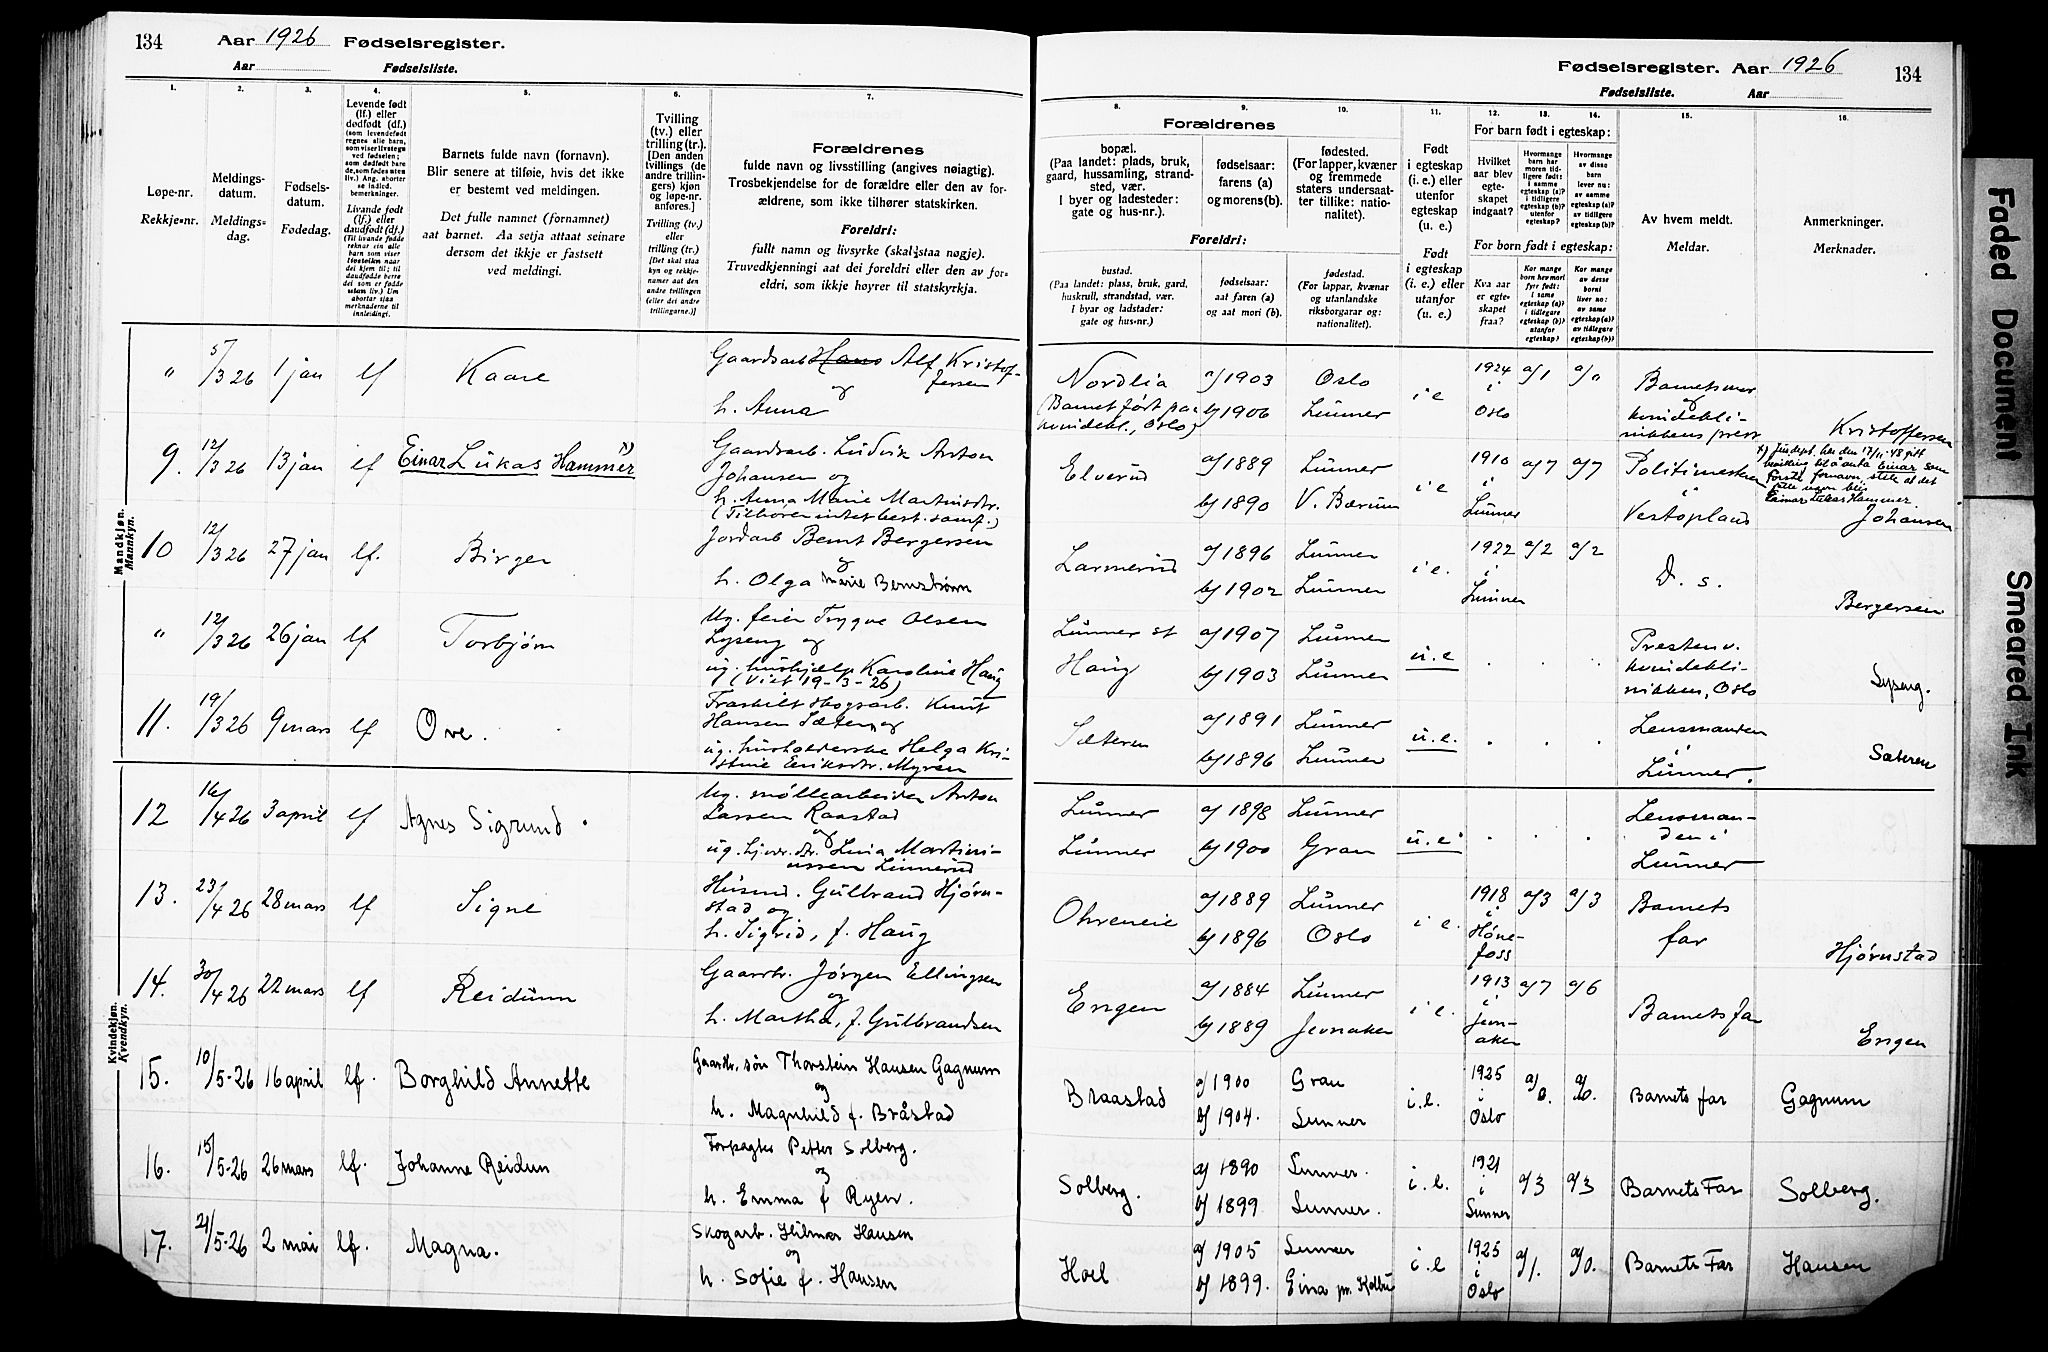 134 Aar 1926 Fødselsregister.
Aar Fødselsliste.
Fødselsregister. Aar 1926 134
Fødselsliste. Aar
1. 2. 3. 4. 5. 6. 7.
Løpe-nr.
Rekkje-nr.
Meldings-
datum.
Meldings-
dag.
Fødsels-
datum.
Fødedag.
Levende født
(lf.) eller
dødfødt (df.)
(som levendefødt
regnes alle barn,
som viser livstegn
ved fødselen;
som dødfødt bare
de, som fødes uten
liv.) Ang. aborter
se indled.
bemerkninger.
Livande født
(lf.) eller
daudfødt (df.)
(Til livande fødde
reknar ein alle
born som viser
livsteikn naar
dei kjem til; til
daudfødde berre
dei som er fødde
utan liv.) Um
abortar sjaa
merknaderne til
innleidingi.
Barnets fulde navn (fornavn).
Blir senere at tilføie, hvis det ikke
er bestemt ved meldingen.
Det fulle namnet (fornamnet)
aat barnet. Aa setja attaat seinare
dersom det ikkje er fastsett
ved meldingi.
Tvilling
(tv.) eller
trilling (tr.).
[Den anden
tvillings (de
andre trillin-
gers) kjøn
og løpe-nr.
anføres.]
Tvilling (tv.)
eller
trilling (tr.)
[Det skal staa
kyn og rekkje-
namer aat den
andre tvillingen
(eller dei andre
trillingarne.)]
Forældrenes
fulde navn og livsstilling (angives nøiagtig).
Trosbekjendelse for de forældre eller den av for-
ældrene, som ikke tilhører statskirken.
Foreldri:
fullt namn og livsyrke (skal staa nøgje).
Truvedkjenningi aat dei foreldri eller den av for-
eldri, som ikkje høyrer til statskyrkja.
8. 9. 10. 11. 12. 13. 14. 15. 16.
Forældrenes
bopæl.
(Paa landet: plads, bruk,
gaard, hussamling, strand-
sted, vær.
I byer og ladesteder:
gate og hus-nr.).
fødselsaar:
farens (a)
og morens (b).
fødested.
(For lapper, kvæner
og fremmede
staters undersaat-
ter tillike: natio-
nalitet).
Foreldri:
bustad.
(Paa landet: plass, bruk, gard,
huskrull, strandstad, vær.
I byar og ladstader:
gate og hus-nr.)
fødselsaar:
aat faren (a)
og aat mori (b).
fødestad.
(For lappar, kvænar
og utanlandske
riksborgarar og:
nationalitet).
Født
i egteskap
(i. e.) eller
utenfor
egteskap
(u. e.)
Født
i egteskap
(i. e.) eller
utanfor
(u. e.)
For barn født i egteskap:
Hvilket
aar blev
egte-
skapet
indgaat?
Hvormange
barn har
moren tid-
ligere født:
i samme
egteskap (a)?
i tidligere
egteskap (b)?
utenfor
egteskap?
Hvormange
av disse
barn
lever nu:
av samme
egteskap (a)?
av tidligere
egteskap (b)?
For born født i egteskap:
Kva aar
er egte-
skapet
fraa?
Kor mange
born hev mori
fyrr født:
i same
egteskap (a)?
i tidlegare
egteskap (b)?
utanfor
egteskap?
Kor mange
av desse
borni
liver no:
av same
egteskap (a)?
av tidlegare
egteskap (b)?
Av hvem meldt.
Meldar.
Anmerkninger.
Merknader.
Mandkjøn.
Mannkyn.
" 5/3 26 1 jan lf Kaare
Gaardsarb. Hans Alf Kristof-
fersen
og
h. Anna
Nordlia
(Barnet født paa
kvindekl., Oslo)
a/1903 Oslo
b/1906 Lunner
i e
1924
i
Oslo
a/1 a/"
Barnets mor
og
kvindekli-
nikkens prest
Kristoffersen
9. 12/3 26 13 jan lf Einar Lukas Hammer x)
Gaardsarb. Ludvik Anton
Johansen og
h. Anna Marie Martinsdtr.
(Tilhører intet best. samf.)
Elverud
a/1889 Lunner
b/1890 V. Bærum
i e
1910
i
Lunner
a/7 a/7
Politimesteren
i
Vestopland
x) Jusdept. har den 17/11.48 gitt
bevilling til å anta Einar som
første fornavn, slik at det
fulle navn blir
Einar Lukas Hammer
Johansen
10 12/3 26 27 jan lf. Birger
Jordarb Bernt Bergersen
og
h. Olga Marie Bernstrøm
Larmerud
a/1896 Lunner
b/1902 Lunner
i e.
1922
i
Lunner
a/2 a/2
D. s.
Bergersen
" 12/3 26 26 jan lf Torbjørn
Ug. feier Trygve Olsen
Lyseng og
ug. hushjelp Karoline Haug
(Viet 19-3-26)
Lunner st
Haug
a/1907 Lunner
b/1903 Lunner
u. e
Presten v.
kvindekli-
nikken, Oslo
Lyseng.
11. 19/3 26 9 mars lf Ove.
Fraskilt skogsarb. Knut
Hansen Sæteren og
ug. husholderske Helga Kri-
stine Eriksdtr. Myren
Sæteren
a/1891 Lunner
b/1896 Lunner
u. e.
Lensmanden
i
Lunner.
Sæteren
Kvindekjøn.
Kvendkyn.
12 16/4 26 3 april lf Agnes Sigrund
Ug. møllearbeider Anton
Larsen Raastad
og
ug. hjvær. dtr. Lina Martini-
ussen Linnerud
Lunner
Lunner
a/1898 Lunner
b/1900 Gran
u. e
Lensman-
den i
Lunner
13. 23/4 26 28 mars lf Signe
Husmd. Gulbrand Hjørn-
stad og
h. Sigrid, f. Haug
Ohreneie
a/1889 Lunner
b/1896 Oslo
i e.
1918
i
Høne-
foss
a/3 a/3
Barnets
far
Hjørnstad
14. 30/4 26 22 mars lf Reidunn
Gaardbr. Jørgen Ellingsen
og
h. Martha, f. Gulbrandsen
Engen
a/1884 Lunner
b/1889 Jevnaker
i e.
1913
i
Jevn-
aker
a/7 a/6
Barnets far
Engen
15. 10/5-26 16 april lf. Borghild Annette
Gaardbr. søn Thorstein Hansen Gagnum
og
h. Magnhild f. Bråstad
Braastad
a/1900 Gran
b/1904. Lunner
i. e.
1925
i
Oslo
a/0. a/0.
Barnets far
Gagnum
16. 15/5-26 26 mars lf. Johanne Reidun
Forpagter Petter Solberg.
og
h. Emma f Ryen.
Solberg.
a/1890 Lunner.
b/1899 Lunner.
i. e.
1921
i
Lunner
a/3 a/3
Barnets Far
Solberg.
17. 21/5-26 2 mai lf. Magna.
Skogarb. Hilmar Hansen
og
h. Sofie f. Hansen
Hoel
a/1905 Lunner
b/1899. Eina pr. Kolbu
i. e
1925
i
Oslo
a/1. a/0.
Barnets Far
Hansen
Faded Document
Smeared Ink